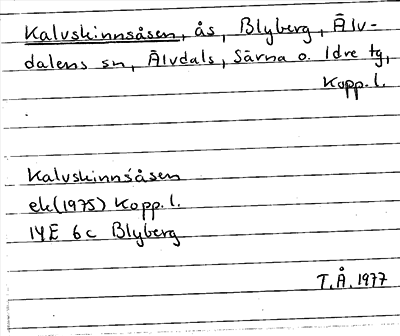 Kalvskinnsåsen, ås, Blyberg, Älv-
dalens sn, Älvdals, Särna o. Idre tg,
Kopp.l.
Kalvskinnsåsen
ek(1975) Kopp.l.
14E 6c Blyberg
T.Å. 1977